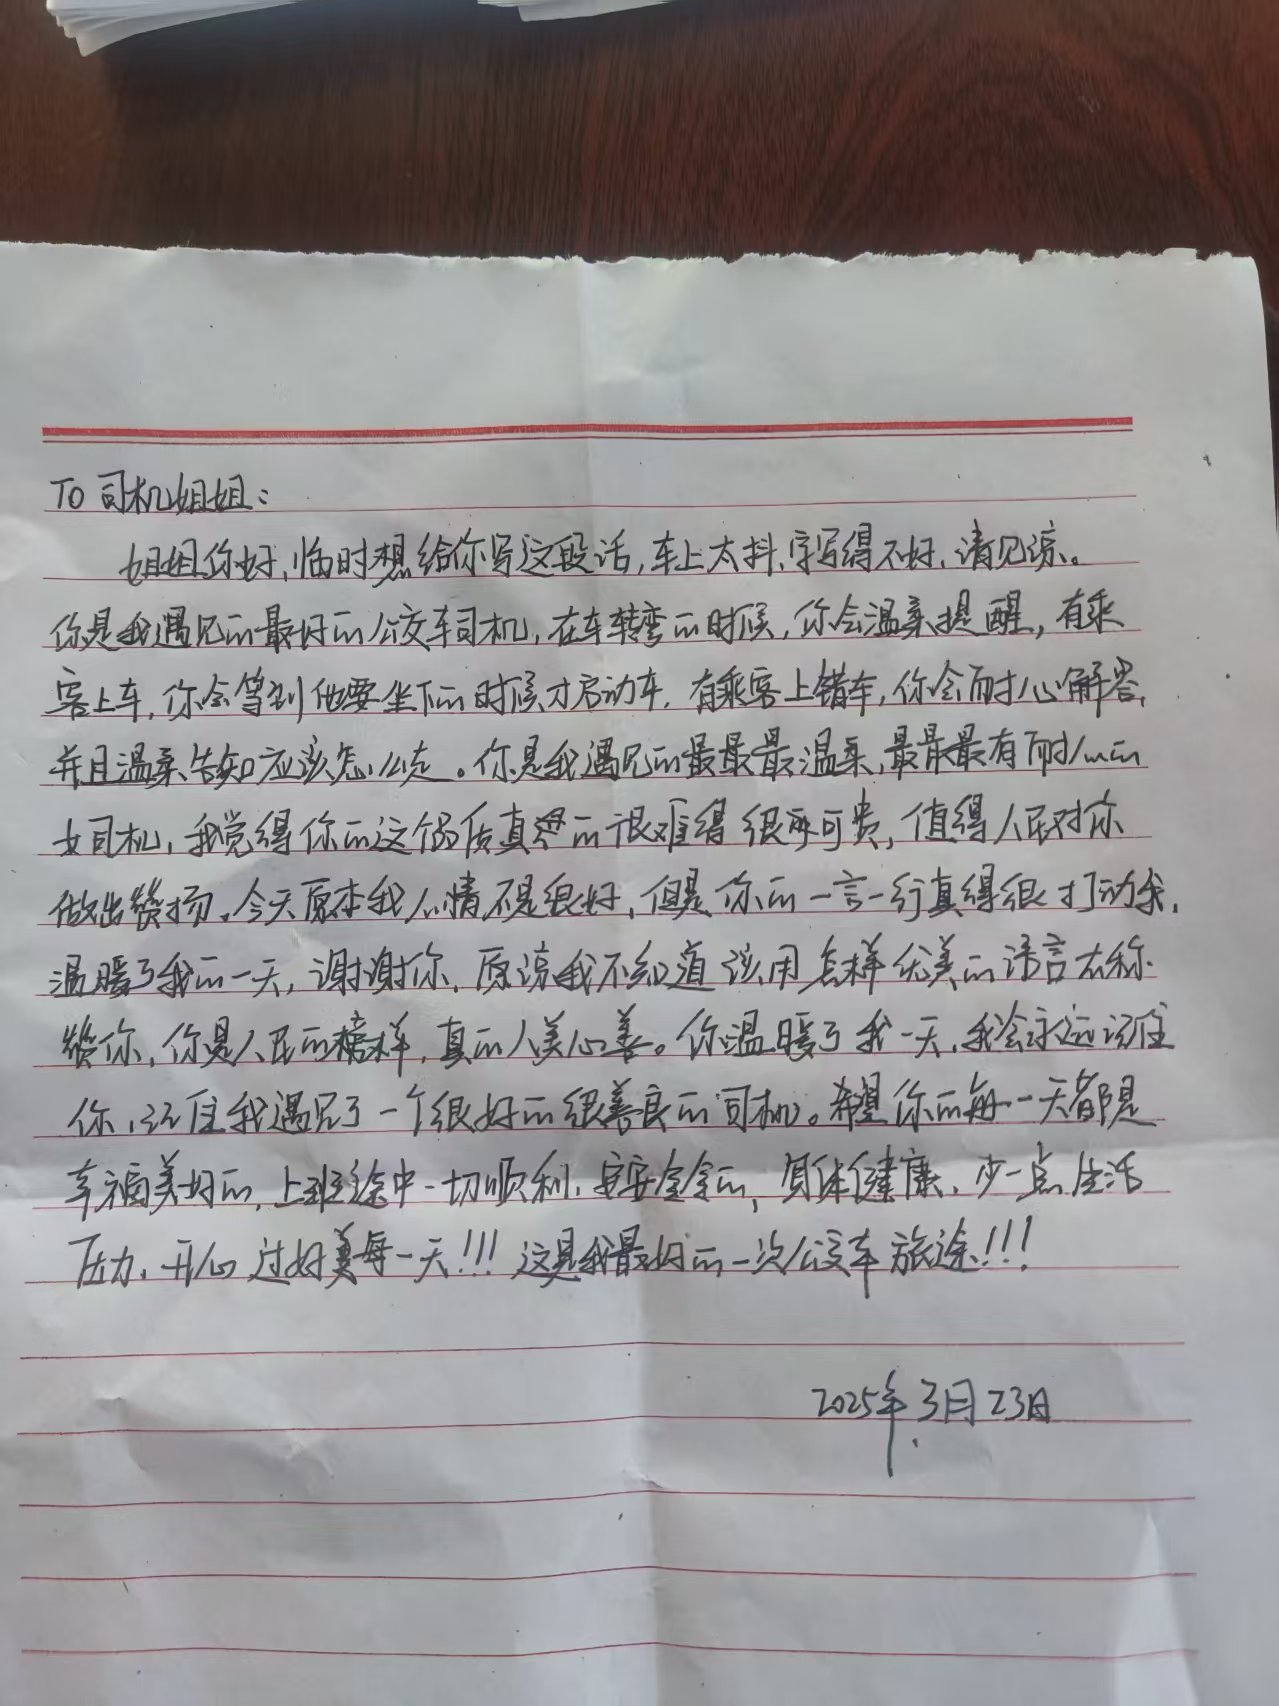 TO 司机姐姐：
姐姐你好，临时想给你写这段话，车上太抖，字写得不好，请见谅。
你是我遇见的最好的公交车司机，在车转弯的时候，你会温柔提醒，有乘
客上车，你会等到他要坐下的时候才启动车，有乘客上错车，你会耐心解答，
并且温柔告知应该怎么走。你是我遇见的最最最温柔，最最最有耐心的
女司机，我觉得你的这个品质真的很难得很可贵，值得人民对你
做出赞扬。今天原本我心情不是很好，但是你的一言一行真得很打动我，
温暖了我的一天，谢谢你，原谅我不知道该用怎样优美的语言去称
赞你，你是人民的榜样，真的人美心善。你温暖了我一天，我会永远记住
你，记住我遇见了一个很好的很善良的司机。希望你的每一天都是
幸福美好的，上班途中一切顺利，安安全全的，身体健康，少一点生活
压力，开心过好每一天！！！这是我最好的一次公交车旅途！！！
2025年3月23日